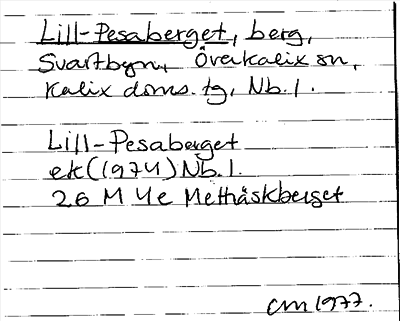 Lill-Pesaberget, berg,
Svartbyn, Överkalix sn,
Kalix doms. tg, Nb. l.
Lill-Pesaberget
ek (1974) Nb. l.
26 M 4e Methåskberget
CM 1977.